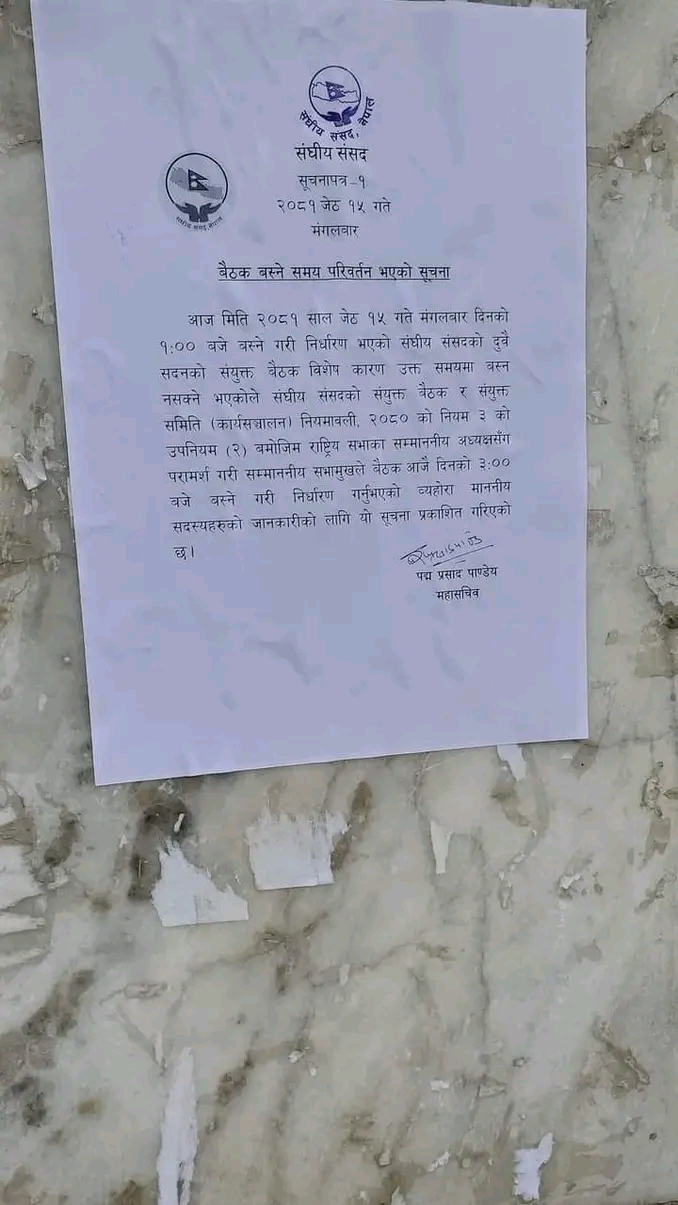 संघीय संसद, नेपाल
संघीय संसद
सूचनापत्र-१
संघीय संसद, नेपाल
२०८१ जेठ १५ गते
मंगलबार
बैठक बस्ने समय परिवर्तन भएको सूचना
आज मिति २०८१ साल जेठ १५ गते मंगलबार दिनको
१:०० बजे बस्ने गरी निर्धारण भएको संघीय संसदको दुवै
सदनको संयुक्त बैठक विशेष कारण उक्त समयमा बस्न
नसक्ने भएकोले संघीय संसदको संयुक्त बैठक र संयुक्त
समिति (कार्यसञ्चालन) नियमावली, २०८० को नियम ३ को
उपनियम (२) बमोजिम राष्ट्रिय सभाका सम्माननीय अध्यक्षसँग
परामर्श गरी सम्माननीय सभामुखले बैठक आजै दिनको ३:००
बजे बस्ने गरी निर्धारण गर्नुभएको व्यहोरा माननीय
सदस्यहरुको जानकारीको लागि यो सूचना प्रकाशित गरिएको
छ।
पद्म प्रसाद पाण्डेय
महासचिव